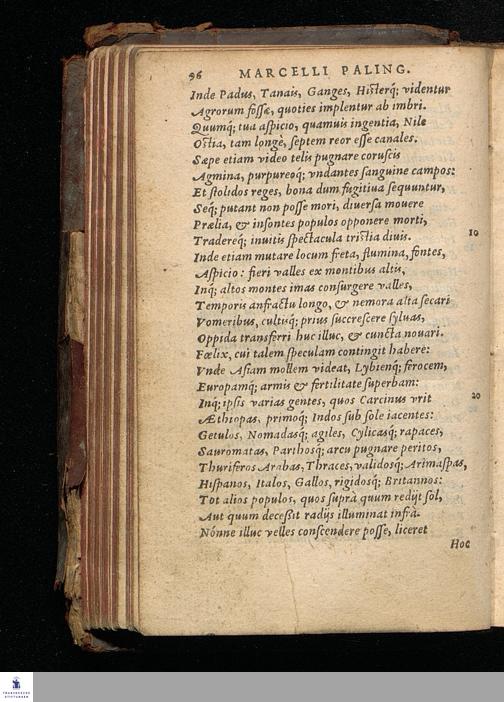 96 MARCELLI PALING.
Inde Padus, Tanais, Ganges, Histerq́; videntur
Agrorum fossæ, quoties implentur ab imbri.
Quumq́; tua aspicio, quamuis ingentia, Nile
Ostia, tam longè, septem reor esse canales.
Sæpe etiam video telis pugnare coruscis
Agmina, purpureoq́; vndantes sanguine campos:
Et stolidos reges, bona dum fugitiua sequuntur,
Seq́; putant non posse mori, diuersa mouere
Prælia, & insontes populos opponere morti, 10
Tradereq́; inuitis spectacula tristia diuis.
Inde etiam mutare locum freta, flumina, fontes,
Aspicio: fieri valles ex montibus altis,
Inq́; altos montes imas consurgere valles,
Temporis anfractu longo, & nemora alta secari
Vomeribus, cultisq́; prius succrescere syluas,
Oppida transferri huc illuc, & cuncta nouari.
Fœlix, cui talem speculam contingit habere:
Vnde Asiam mollem videat, Lybienq́; ferocem,
Europamq́; armis & fertilitate superbam:
Inq́; ipsis varias gentes, quos Carcinus vrit 20
Æthiopas, primoq́; Indos sub sole iacentes:
Getulos, Nomadasq́; agiles, Cylicasq́; rapaces,
Sauromatas, Parthosq́; arcu pugnare peritos,
Thuriferos Arabas, Thraces, validosq́; Arimaspas,
Hispanos, Italos, Gallos, rigidosq́; Britannos:
Tot alios populos, quos suprà quum redijt sol,
Aut quum decessit radijs illuminat infrà.
Nónne illuc velles conscendere posse, liceret
Hoc